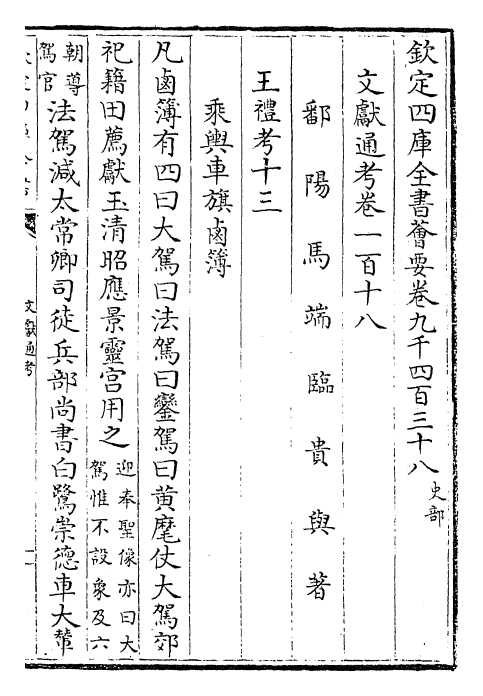 欽定四庫全書薈要卷九千四百三十八 史部
文獻通考卷一百十八
鄱陽馬端臨貴與著
王禮考十三
乘輿車旗鹵簿
凡鹵簿有四曰大駕曰法駕曰鑾駕曰黄麾仗大駕郊
祀籍田薦獻玉清昭應景靈宫用之迎奉聖像亦曰大
駕惟不設象及六
朝導
駕官法駕減太常卿司徒兵部尚書白鷺崇德車大輦
文獻通考
一